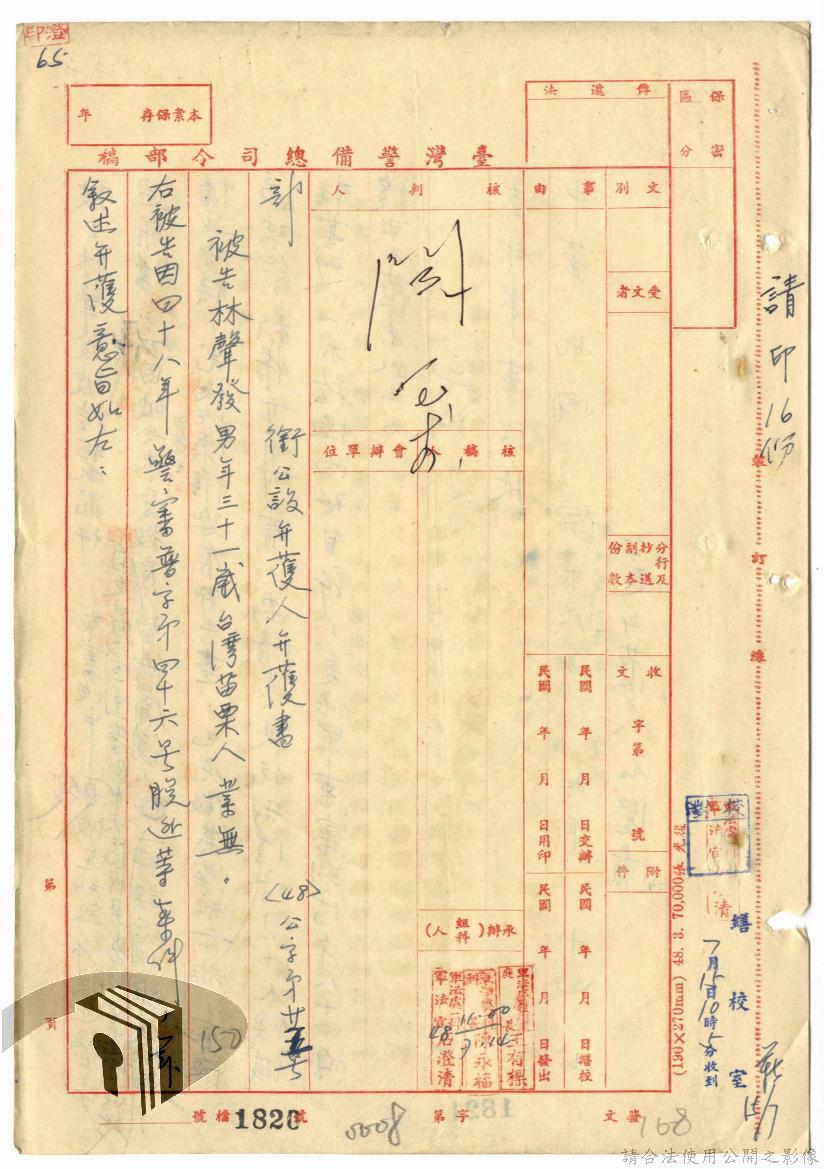 65
請印16份
裝
訂
線
保密
區分
傳遞法
本案保存
年
臺灣警備總司令部稿
文別
事由
核判人
受文者
分行及抄送副本份數
核稿人會辦單位
收文
字第
號
附件
民國
年
月
日交辦
民國
年
月
日用印
民國
年
月
日繕校
民國
年
月
日發出
承辦(組科人)
衛公設弁護人弁護書
(48)公字第廿五号
被告林聲發男年三十一歲台灣苗栗人業無。
右被告因四十八年警審普字第四十六号脫逃等案件
敘述弁護意旨如左：
150
軍法處
王有樑
陳永福
軍法官
君澄清
(190×270mm) 48. 3. 70,000張
繕校室
7月15日10時5分收到
15/7
第
頁
檔號 1820 號
0008
字第
發文
168
請合法使用公開之影像